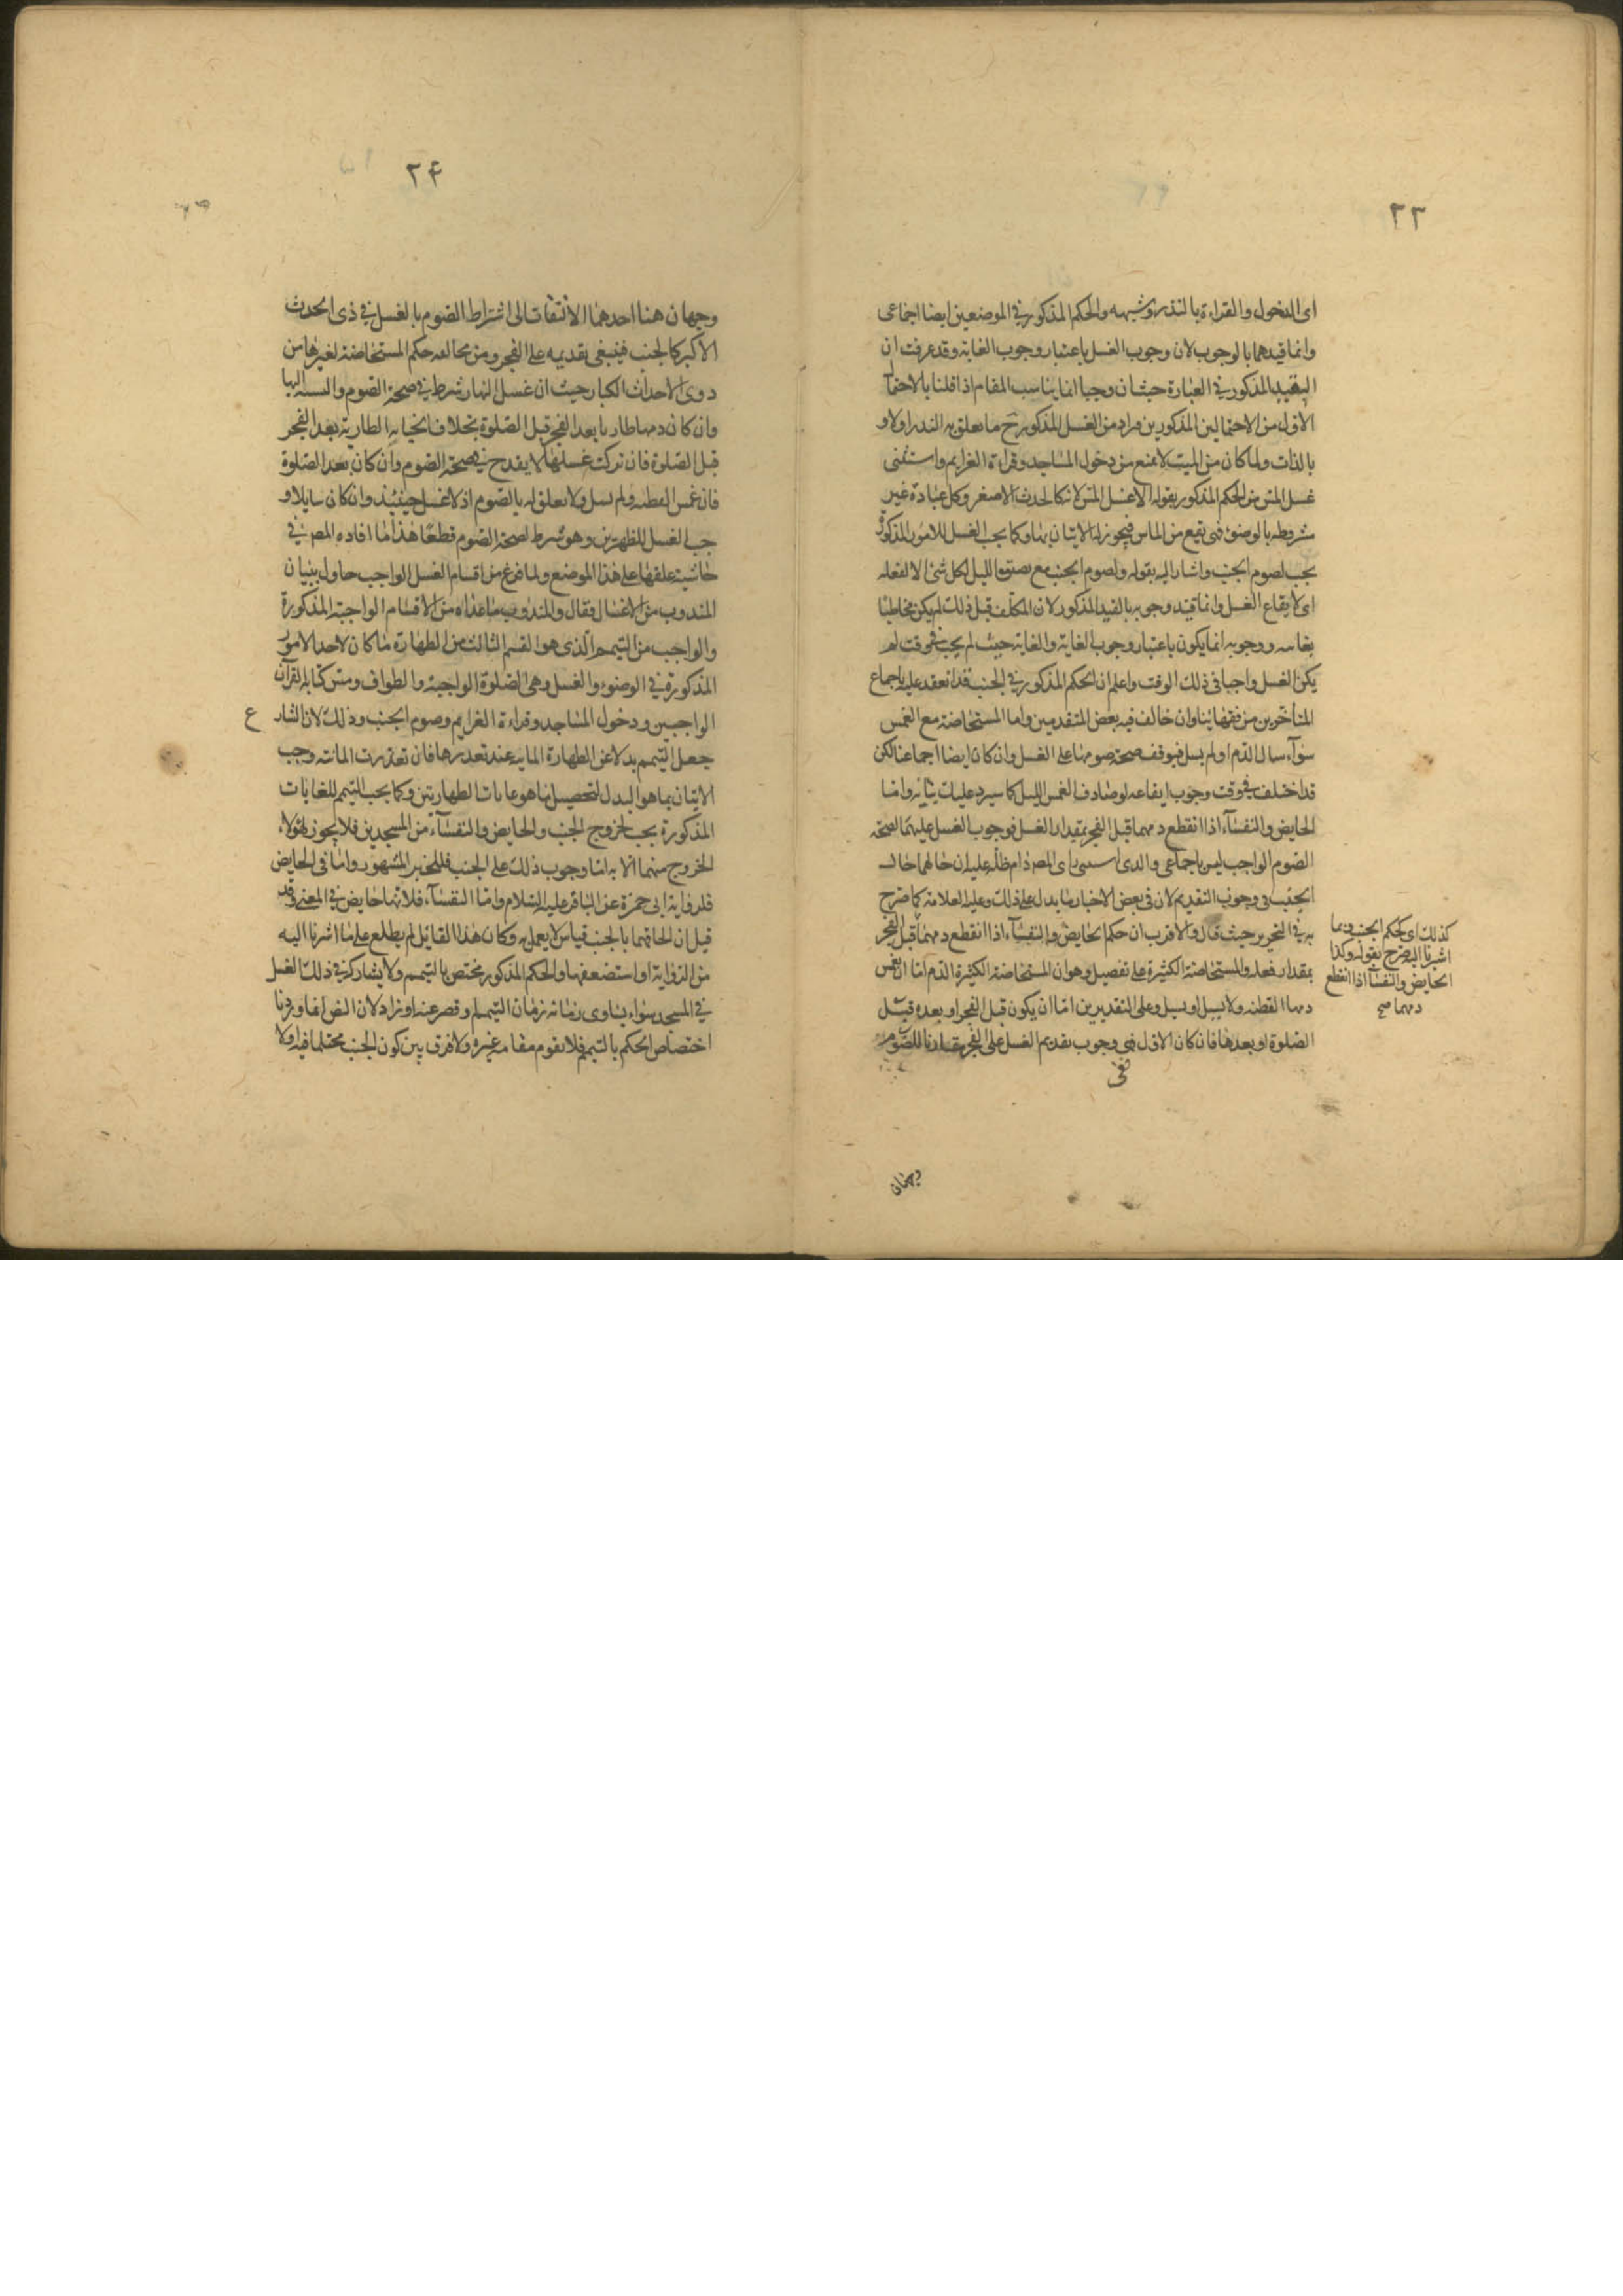 ٢٣
اى الدخول والقراءة بالنذر وشبهه والحكم المذكور فى الموضعين ايضا اجماعى
وانما قيدهما بالوجوب لان وجوب الغسل باعتبار وجوب الغاية وقد عرفت ان
التقييد المذكور فى العبارة حيث ان وجبا انما يناسب المقام اذا قلنا بالاحتما
الاول من الاحتمالين المذكورين فراد من الغسل المذكور ح ما تعلق به النذر اولا و
بالذات ولما كان مس الميت لا يمنع من دخول المساجد وقراءة العزايم واستثنى
غسل المس من الحكم المذكور بقوله الا غسل المس لانه كالحدث الاصغر وكل عبادة غير
مشروطه بالوضوء فهى تقع من الماس فيجوز له الاتيان بها وكما يجب الغسل للامور المذكورة
يجب لصوم الجنب واشار اليه بقوله ولصوم الجنب مع تضيق الليل لكل شئ الا لفعله
اى لايقاع الغسل وانما قيد وجوبه بالقيد المذكور لان المكلف قبل ذلك لم يكن مخاطبا
بغايته ووجوبه انما يكون باعتبار وجوب الغاية والغاية حيث لم يجب فى وقت لم
يكن الغسل واجبا فى ذلك الوقت واعلم ان الحكم المذكور فى الجنب قد انعقد عليه اجماع
المتأخرين من فقهائنا وان خالف فيه بعض المتقدمين واما المستحاضة مع الغمس
سوآء سال الدم او لم يسل فيوقف صحة صومها على الغسل وان كان ايضا اجماعنا لكن
قد اختلف فى وقت وجوب ايقاعه لو صادف الغمس الليل كما سيرد عليك بيانه واما
الحايض والنفسآء اذا انقطع دمهما قبل الفجر بمقدار الغسل فوجوب الغسل عليهما لصحة
الصوم الواجب ليس باجماعى والذى راى المصر دام ظله عليه ان حالهما حال
الجنب فى وجوب التقديم لان فى بعض الاخبار ما يدل على ذلك وعليه العلامة كما صرح
به فى التحرير حيث قال والاقرب ان حكم الحايض والنفسآء اذا انقطع دمهما قبل الفجر
بمقدار فعله والمستحاضة الكثيرة على تفصيل وهو ان المستحاضة الكثيرة الدم اما ان يغمس
دمها القطنه ولا يسيل او يسيل وعلى التقديرين اما ان يكون قبل الفجر او بعده قبل
الصلوة او بعدها فان كان الاول ففى وجوب تقديم الغسل على الفجر مقارنا للصوم
كذلك اى كحكم الجنب وبما
اشرنا اليه صرح بقوله وكذا
الحايض والنفسآء اذا انقطع
دمهما صح
وجهان
٢۴
وجهان هنا احدهما الالتفات الى اشتراط الصوم بالغسل فى ذى الحدث
الاكبر كالجنب فينبغى تقديمه على الفجر ومن مخالفه حكم المستحاضة لغيرها من
ذوى الاحداث الكبار حيث ان غسل النهار شرط فى صحة الصوم والنسبه اليها
وان كان دمها طاريا بعد الفجر قبل الصلوة بخلاف الجنابة الطارية بعد الفجر
قبل الصلوة فان تركت غسلها لا يقدح فى صحة الصوم وان كان بعد الصلوة
فان غمس القطنه ولم يسل ولا تعلق له بالصوم اذ لا غسل حينئذ وان كان سايلا و
جب الغسل للظهرين وهو شرط لصحة الصوم قطعا هذا ما افاده المصر فى
حاشية علقها على هذا الموضع ولما فرغ من اقسام الغسل الواجب حاول بنيان
المندوب من الاغسال فقال والمندوب ما عداه من الاقسام الواجبة المذكورة
والواجب من التيمم الذى هو القسم الثالث من الطهارة ما كان لاحد الامور
المذكورة فى الوضوء والغسل وهى الصلوة الواجبة والطواف ومس كتابة القرآن
الواجبين ودخول المساجد وقراءة العزايم وصوم الجنب وذلك لان الشار ع
جعل التيمم بدلا عن الطهارة المايه عند تعذرها فان تعذرت المائه وجب
الاتيان بما هو البدل لتحصيل ما هو غايات الطهارتين وكما يجب التيمم للغايات
المذكورة يجب لخروج الجنب والحايض والنفسآء من المسجدين فلا يجوز لهؤلاء
الخروج منهما الا به اما وجوب ذلك على الجنب فللخبر المشهور واما فى الحايض
فلرواية ابى حمزة عن الباقر عليه السلام واما النفسآء فلانها حايض فى المعنى وقد
قيل ان الحاقهما بالجنب قياس لا يعمل به وكان هذا القايل لم يطلع على ما اشرنا اليه
من الرواية او استضعفها والحكم المذكور مختص بالتيمم ولا يشاركه فى ذلك الغسل
فى المسجد سواء يساوى زمانه زمان التيمم او قصر عنه او زاد لان النص انما ورد با
اختصاص الحكم بالتيمم فلا يقوم مقامه غيره ولا فرق بين كون الجنب محتلما فيه او لا